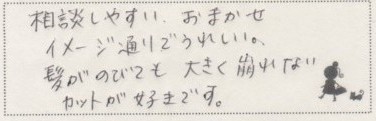 相談しやすい、おまかせ
イメージ通りでうれしい。
髪がのびても 大きく崩れない
カットが好きです。